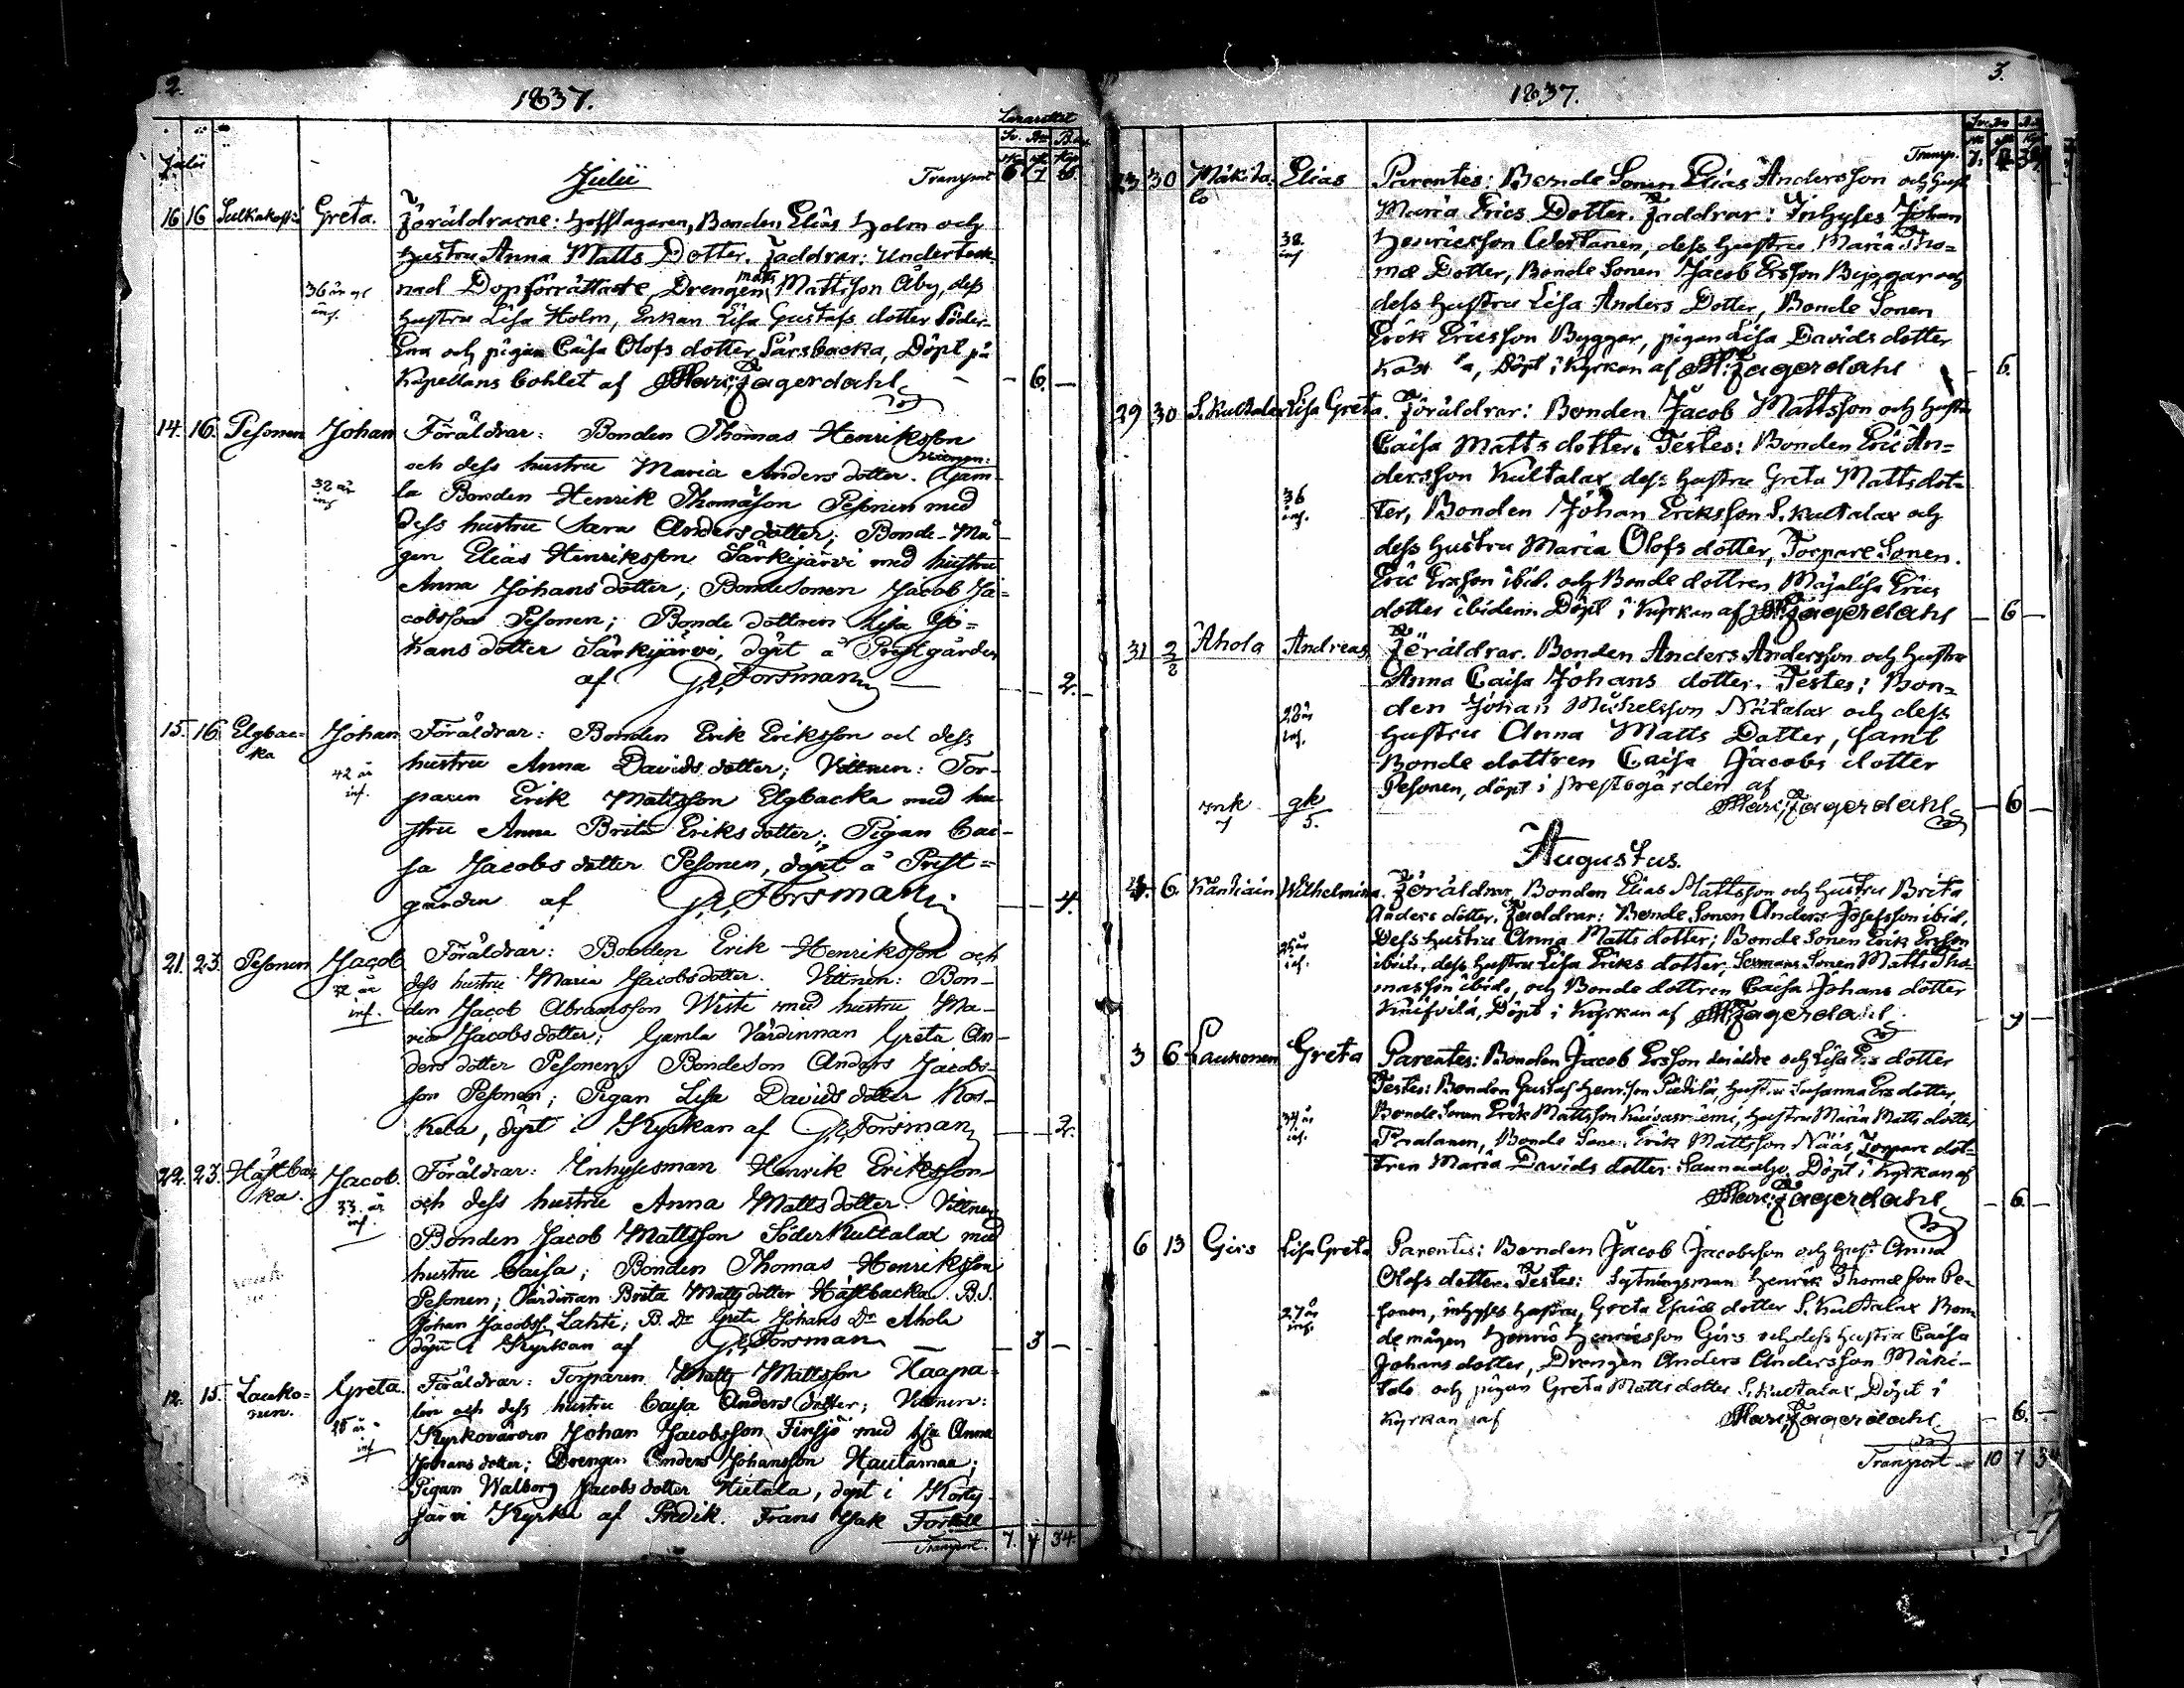 2.
1837.
Lazarettet
Julii
Julii Transport 6 7
16 16 Sulkakoski Greta. Föräldrarne: Hofslagaren, Bonden Elias Holm och
hustru Anna Matts Dotter. Faddrar: Underteck-
36 år gl inf. nad Dopförrättare, Drengen Matts Mattsson Åby, dess
hustru Lisa Holm, Enkan Lisa Gustafs dotter Söder-
och pigan Caisa Olofs dotter Särsbacka, Döpt på
Kapellans bohlet af Marc; Fagerdahl — 6. —
14. 16. Pesonen Johan Föräldrar: Bonden Thomas Henriksson
och dess hustru Maria Anders dotter. Vittnen: Gam-
32 år inf la Bonden Henrik Thomasson Pesonen med
dess hustru Sara Anders dotter; Bonde-Må-
gen Elias Henriksson Särkijärvi med hustru
Anna Johans dotter; Bondesonen Jacob Ja-
cobsson Pesonen; Bonde dottren Lisa Jo-
hans dotter Särkijärvi, döpt å Prestgården
af G. Forsman — — 2.
15. 16 Elgbac- Johan Föräldrar: Bonden Erik Eriksson och dess
ka hustru Anna Davids dotter; Vittnen: Tor-
42 år inf. paren Erik Mattsson Elgbacka med hu-
stru Anna Brita Eriks dotter; Pigan Cai-
sa Jacobs dotter Pesonen, döpt å Prest-
gården af G. Forsman — — 4.
21. 23. Pesonen Jacob Föräldrar: Bonden Erik Henriksson och
32 år dess hustru Maria Jacobsdotter. Vittnen: Bon-
inf. den Jacob Abramsson Wisti med hustru Ma-
ria Jacobs dotter; Gamla Värdinnan Greta An-
ders dotter Pesonen; Bondeson Anders Jacobs-
son Pesonen; Pigan Lisa Davids dotter Kos-
kela, döpt i Kyrkan af G. Forsman — — 2.
22. 23. Häslbac- Jacob Föräldrar: Inhysesman Henrik Eriksson
ka. 33 år inf. och dess hustru Anna Matts dotter. Vittnen
Bonden Jacob Mattsson Söderkultalax med
hustru Caisa; Bonden Thomas Henriksson
Pesonen; Värdinnan Brita Matts dotter Häslbacka. B.S.
Johan Jacobss. Lahti; B. Dr Greta Johans Dr Ahola
döpt i Kyrkan af G. Forsman — 3 —
12. 15. Lauko- Greta. Föräldrar: Torparen Matts Mattsson Haapa-
nen. och dess hustru Caisa Anders dotter; Vittnen:
inf Kyrkovärden Johan Jacobsson Finsjö med h:u Anna
Johans dotter; Drengen Anders Johansson Hautamaa;
Pigan Walborg Jacobs dotter Hietala, döpt i Korte-
järvi Kyrka af Predik. Frans Isak
Transport. 7. 4 34.
3.
1837.
Transp. 7.
23 30 Mäkita- Elias Parentes: Bonde Sonen Elias Andersson och hust
lo Maria Erics Dotter. Faddrar: Inhyses Johan
38. inf Henricsson dess hustru Maria Tho-
mæ Dotter, Bonde Sonen Jacob Ersson Byggar och
dess hustru Lisa Anders Dotter, Bonde Sonen
Erik Ericsson Byggar, pigan Lisa Davids dotter
Döpt i Kyrkan af M: Fagerdahl — 6.
29 30 S. Kultalax Lisa Greta. Föräldrar: Bonden Jacob Mattsson och hustru
Caisa Matts dotter. Testes: Bonden Eric An-
dersson Kultalax, dess hustru Greta Matts dot-
36 inf. ter, Bonden Johan Eriksson S. Kultalax och
dess hustru Maria Olofs dotter, Torpare Sonen
Eric Ersson ibid. och Bonde dottren Majalisa Erics
dotter ibidem. Döpt i Kyrkan af M: Fagerdahl — 6 —
31 2/8 Ahola Andreas Föräldrar. Bonden Anders Andersson och hustru
Anna Caisa Johans dotter. Testes: Bon-
28 år inf. den Johan Michelsson Nätalax och dess
hustru Anna Matts Dotter, samt
Bonde dottren Caisa Jacobs dotter
Pesonen, döpt i prestegården af
mk 7 gk 5. Marc; Fagerdahl — 6 —
Augustus.
6. Känsäin Wilhelmina. Föräldrar, Bonden Elias Mattsson och hustru Brita
Anders dotter. Faddrar: Bonde Sonen Anders Josefsson ibid,
inf. Dess hustru Anna Matts dotter; Bonde Sonen Erik Ersson
ibid., dess hustru Lisa Eriks dotter, Sexmans Sonen Matts Tho-
masson ibid., och Bonde dottren Caisa Johans dotter
Knifvilä, Döpt i Kyrkan af M: Fagerdahl. — 9 —
3 6 Laukonen Greta Parentes: Bonden Jacob Ersson den äldre och Lisa Ers dotter
Testes: Bonden Gustaf Henr:son Pietilä, hustru Susanna Ers dotter,
34 år inf. Bonde Sonen Erik Mattsson Kuivasniemi, hustru Maria Matts dotter
Bonde Sonen Erik Mattsson Nääs, Torpare dot-
tren Maria Davids dotter Döpt i Kyrkan af
Marc; Fagerdahl — 6. —
6 13 Girs Lisa Greta Parentes: Bonden Jacob Jacobsson och hust: Anna
Olofs dotter. Testes: Sytningsman Henrik Thomæson Pe-
27 år inf. sonen, inhyses hustru, Greta dotter S. Kultalax Bon-
de mågen Henric Henricsson Girs och dess hustru Caisa
Johans dotter, Drengen Anders Andersson Mäki-
talo och pigan Greta Matts dotter S. Kultalax, Döpt i
Kyrkan af Marc; Fagerdahl — 6. —
Transport — 10 7